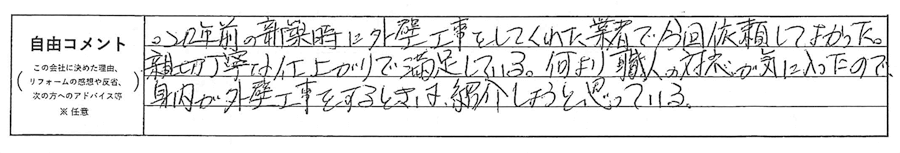 自由コメント
（この会社に決めた理由、
リフォームの感想や反省、
次の方へのアドバイス等）
※ 任意
。20年前の新築時に外壁工事をしてくれた業者で今回依頼してよかった。
親切丁寧な仕上がりで満足している。何より職人の対応が気に入ったので、
身内が外壁工事をするときは、紹介しようと思っている。